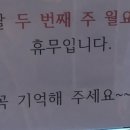 두 번째 주 월요
휴무입니다.
꼭 기억해 주세요~~